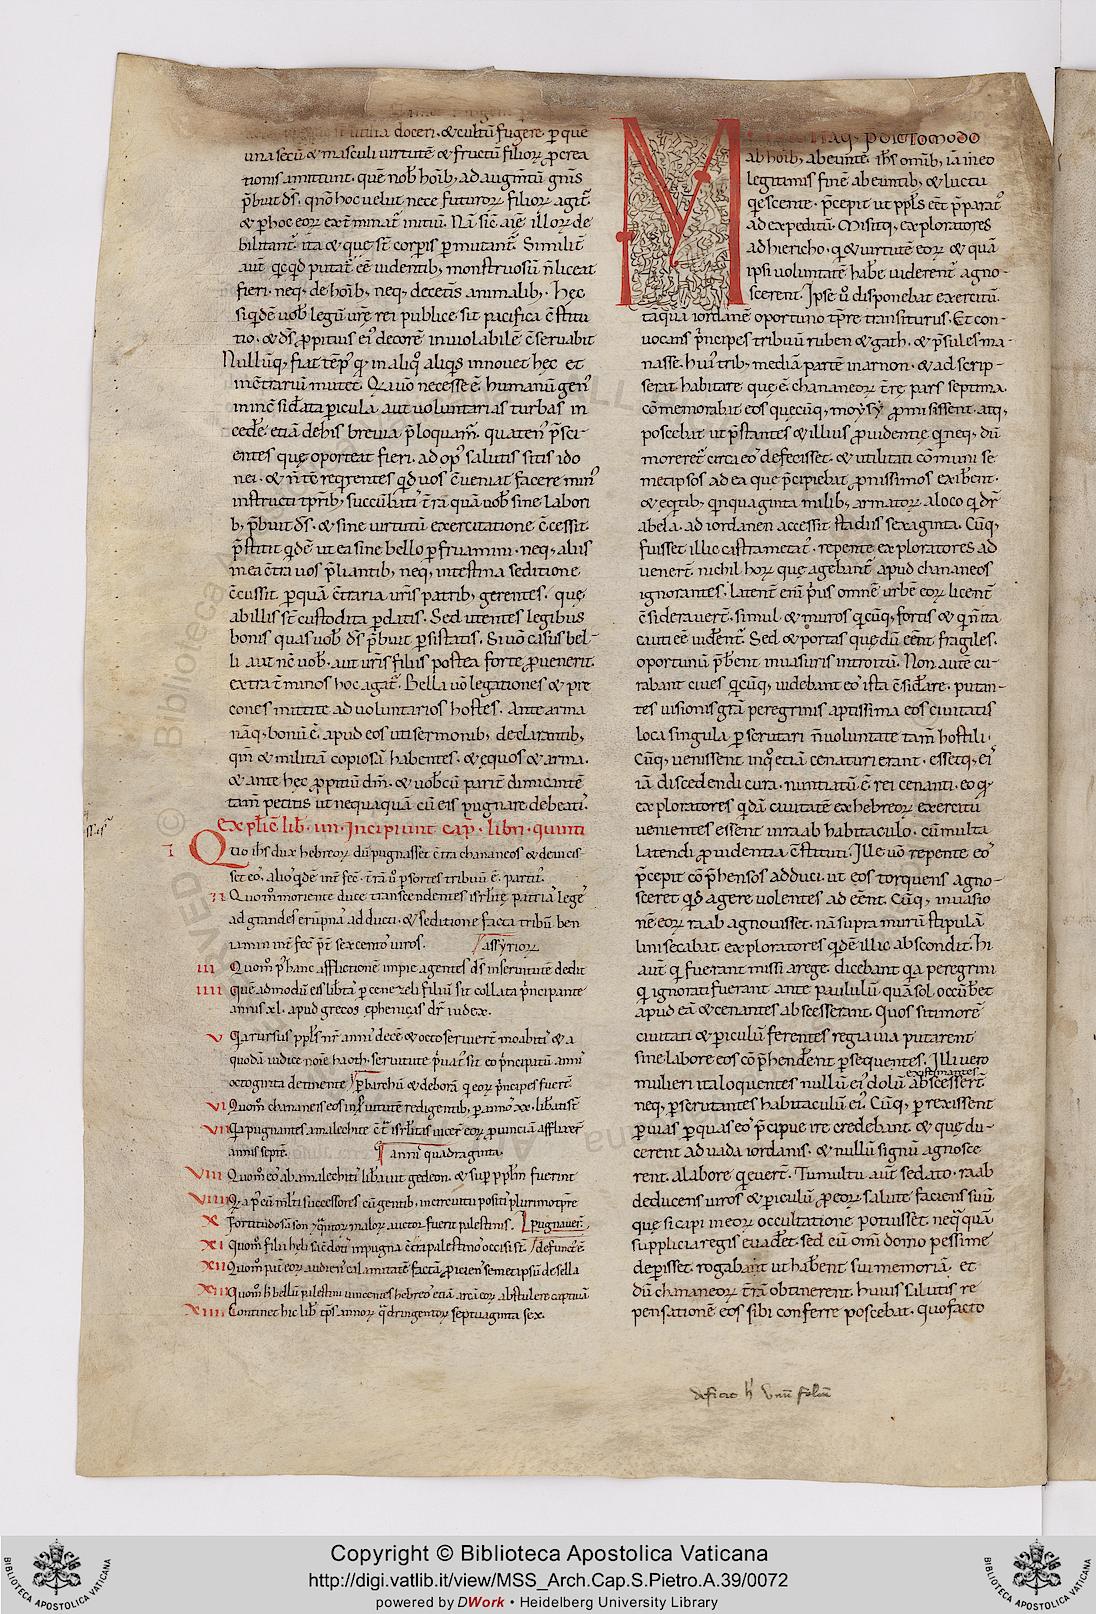 utilia doceri. & cultū fugere. p quē
una secū & masculi virtutē & fructū filioꝝ p crea
tionis amittunt. quē nob̄ hoīb; ad augm̄tū gn̄is
p̄buit d̄s. qn̄o hoc velut nece futuroꝝ filioꝝ agit᷑
& p hoc eoꝝ ext̄minat᷑ initiū. Nā sic aīe illoꝝ de
bilitant᷑. ita & que st̄ corp̄is pmutant᷑. Similit̄
aut̄ qcqd putat᷑ eē videntib; monstruosū n̄ liceat
fieri. neq; de hoīb; neq; de cet̄is animalib;. Hęc
siqdē uob̄ legū urē rei publice sit pacifica c̄stitu
tio. & d̄s ꝓpitius ei' decorē inviolabilē c̄servabit
Nullūq; fiat tēp' q̄ in aliq̊ aliqs innouet hęc et
in c̄trariū mutet. Q̄a ūo necesse ē. humanū gen'
inmēsid̄ata picula. aut voluntarias turbas in
cedē. etiā de his brevia p̄loquam̄. quaten' p̄sci
entes quę oporteat fieri. ad op' salutis sitis ido
nei. & n̄ tc̄ reqrentes qd uos c̄veniat facere min'
instructi tp̄rib; succūbatis. t̄rā quā uob̄ sine labori
b; p̄buit d̄s. & sine virtutū exercitatione c̄cessit.
p̄stitit qdē ut ea sine bello pfruamini. neq; aliis
in ea c̄tra vos p̄liantib; neq; intestina seditione
c̄cussit. p quā c̄traria ur̄is patrib; gerentes. quę
ab illis st̄ custodita pdatis. Sed utentes legibus
bonis quas uob̄ d̄s p̄buit psistatis. Si ūo casus bel-
li. aut nc̄ uob̄. aut ur̄is filiis postea forte ꝓvenerit.
extra t̄minos hoc agat᷑. Bella ūo legationes & pre
cones mittite ad voluntarios hostes. Ante arma
nāq; bonū ē. apud eos uti sermonib; declarantib;
qm̄ & militiā copiosā habentes. & equos & arma.
& ante hęc ꝓpitiū dm̄. & uob̄cū parit̄ dimicantē
tam̄ petitis ut nequaquā cū eis pugnare debeatis.
Explic̄ lib̄. IIII. Incipiunt cap̄. libri. quinti
I Quo ih̄s dux hebreoꝝ dū pugnasset c̄tra chananeos & devicis-
set eos. alios qdē int̄fec̄. t̄rā ū p sortes tribuū ē. partit'.
II Quom̊ moriente duce transcendentes isrl̄itę patria leges
ad grandes erūpnas adducti. & seditione facta tribū ben
iamin int̄fec̄ p̄t sexcentos viros. assyrioꝝ
III Quom̊ p' hanc afflictionē impie agentes d̄s in servitutē dedit
IIII quēadmodū eis libtas p cenezeli filiū sit collata p̄ncipante
annis xl. apud grecos q̄ phenicas dr̄ iudex.
V Q̄a rursus ppl̄s nr̄ annis decē & octo servierit moabitis & a
quodā iudice noīe haoth. servitute p̄vat' sit. eo p̄ncipatū annis
octoginta detinente p barchū & deborā q eoꝝ p̄ncipes fuer̄.
VI Quom̊ chananeis eos in servitutē redigentib; p annos xx. libati st̄.
VII Q̄a pugnantes amalechite c̄t isrl̄itas vicer̄ eoꝝ ꝓvinciā afflixer̄
annis septē. annis quadraginta.
VIII Quom̊ eos ab amalechitis libavit gedeon. & sup ppl̄m fuerint
VIIII Q̄a p' eū ml̄ti successores cū gentib; in circuitu positis plurimo tp̄re
X Fortitudo samson q̄ntoꝝ maloꝝ auctor fuerit palestinis. pugnaver̄.
XI Quom̊ filii heli sacdotis in pugna c̄tra palestinos occisi st̄. defunct' ē.
XII Quom̊ pat̄ eoꝝ audiens calamitatē factā ꝓiciens semetipsū de sella
XIII Quom̊ h̄ bellū palestini vincentes hebreos etiā arcā eoꝝ abstulere captivā
XIIII Continet hic lib̄ tp̄s annoꝝ q̄dringentoꝝ septuaginta sex.
Moyse itaq; pdicto modo
ab hoīb; abeunte. ih̄s omīb; iā in eo
legitimis finē abeuntib; & luctu
qescente. p̄cepit ut ppl̄s eēt p̄parat'
ad expeditū. Misitq; exploratores
ad hiericho. q & virtutē eoꝝ & quā
ipsi voluntatē habē viderent agno-
scerent. Ipse ū disponebat exercitū.
tāquā iordanē oportuno tp̄re transiturus. Et con-
vocans p̄ncipes tribuū ruben & gath. & p̄sules ma-
nasse. hui' trib; mediā partē in arnon. & ad scrip-
serat habitare que ē chananeoꝝ t̄rę pars septima.
cōmemorabat eos quęcūq; moysi ꝓmisissent. atq;
poscebat ut p̄stantes & illius ꝓvidentię q neq; dū
moreret᷑ circa eos defecisset. & utilitati cōmuni se
metipsos ad ea que p̄cipiebat ꝓnissimos exib̄ent.
& eqtib; qnquaginta milib; armatoꝝ. a loco q dr̄
abela. ad iordanen accessit stadiis sexaginta. Cūq;
fuisset illic castrametat'. repente exploratores ad
vener̄t. nichil hoꝝ quę agebant᷑ apud chananeos
ignorantes. Latent̄ eni p̄us omnē urbē eoꝝ licent̄
c̄sideraver̄t. simul & muros qcūq; fortis & q n̄ ita
cauti eē videnr̄t. Sed & portas quę dū eēnt fragiles.
oportunū p̄bent invasuris introitū. Non autē cu-
rabant cives qcūq; videbant eos ista c̄sidare. putan-
tes visionis grā peregrinis aptissima eos civitatis
loca singula pscrutari n̄ voluntate tam̄ hostili.
Cūq; venissent inq̊ etiā cenaturi erant. essetq; eis
iā discedendi cura. nuntiatū ē. rei cenanti. eo q
exploratores qdā civitatē ex hebreoꝝ exercitu
venientes essent in raab habitaculo. cū multa
latendi ꝓvidentia c̄stituti. Ille ūo repente eos
p̄cepit cōp̄hensos adduci. ut eos torquens agno-
sceret qd agere volentes adeēnt. Cūq; invasio
nē eoꝝ raab agnovisset. nā supra murū stipulā
lini secabat. exploratores qdē illic abscondit. hi
aut̄ q fuerant missi a rege. dicebant qa peregrini
q ignorati fuerant ante paululū quā sol occūbet
apud eā & cenantes abscesserant. Quos si timorē
civitati & piculū ferentes regia via putarent
sine labore eos cōp̄hendent psequentes. Illi vero
mulieri ita loquentes nullū ei' dolū existimantes abscesser̄t.
neq; pscrutantes habitaculū ei'. Cūq; prexissent
p vias p quas eos p̄cipue ire credebant. & quę du-
cerent ad vada iordanis. & nullū signū agnosce
rent. a labore qever̄t. Tumultu aut̄ sedato. raab
deducens viros & piculū ꝓ eoꝝ salute faciens suū
que si capi in eoꝝ occultatione potuisset. neq̄quā
supplicia regis evadet. sed cū omī domo pessime
depisset. rogabant ut habent sui memoriā. et
dū chananeoꝝ t̄rā obtinerent. huius salutis re
pensationē eos sibi conferre poscebat. quo facto
deficit h̄ unū foliū
Copyright © Biblioteca Apostolica Vaticana
http://digi.vatlib.it/view/MSS_Arch.Cap.S.Pietro.A.39/0072
powered by DWork • Heidelberg University Library